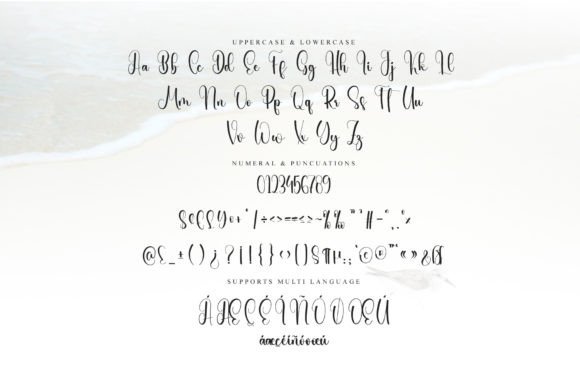 UPPERCASE & LOWERCASE
Aa Bb Cc Dd Ee Ff Gg Hh Ii Jj Kk Ll
Mm Nn Oo Pp Qq Rr Ss Tt Uu
Vv Ww Xx Yy Zz
NUMERAL & PUNCUATIONS
0123456789
/÷<>=≤≥~
@£_±()¿?¡!{}‹›[]§¶µ.:;'©®™«»&
SUPPORTS MULTI LANGUAGE
ÁÆÇÉÍÑÓØŒÚ
áæçéíñóøœú